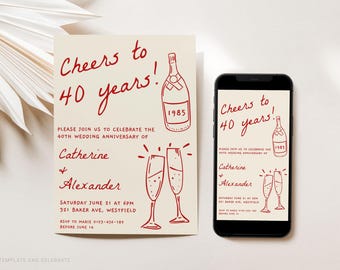 Cheers to
40 years!
1985
PLEASE JOIN US TO CELEBRATE THE
40TH WEDDING ANNIVERSARY OF
Catherine
&
Alexander
SATURDAY JUNE 21 AT 6PM
321 BAKER AVE, WESTFIELD
RSVP TO MARIE
BEFORE JUNE 14
Cheers to
40 years!
1985
PLEASE JOIN US TO CELEBRATE THE
40TH WEDDING ANNIVERSARY OF
Catherine
&
Alexander
SATURDAY JUNE 21 AT 6PM
321 BAKER AVE, WESTFIELD
BEFORE JUNE 14
TEMPLATE AND CELEBRATE